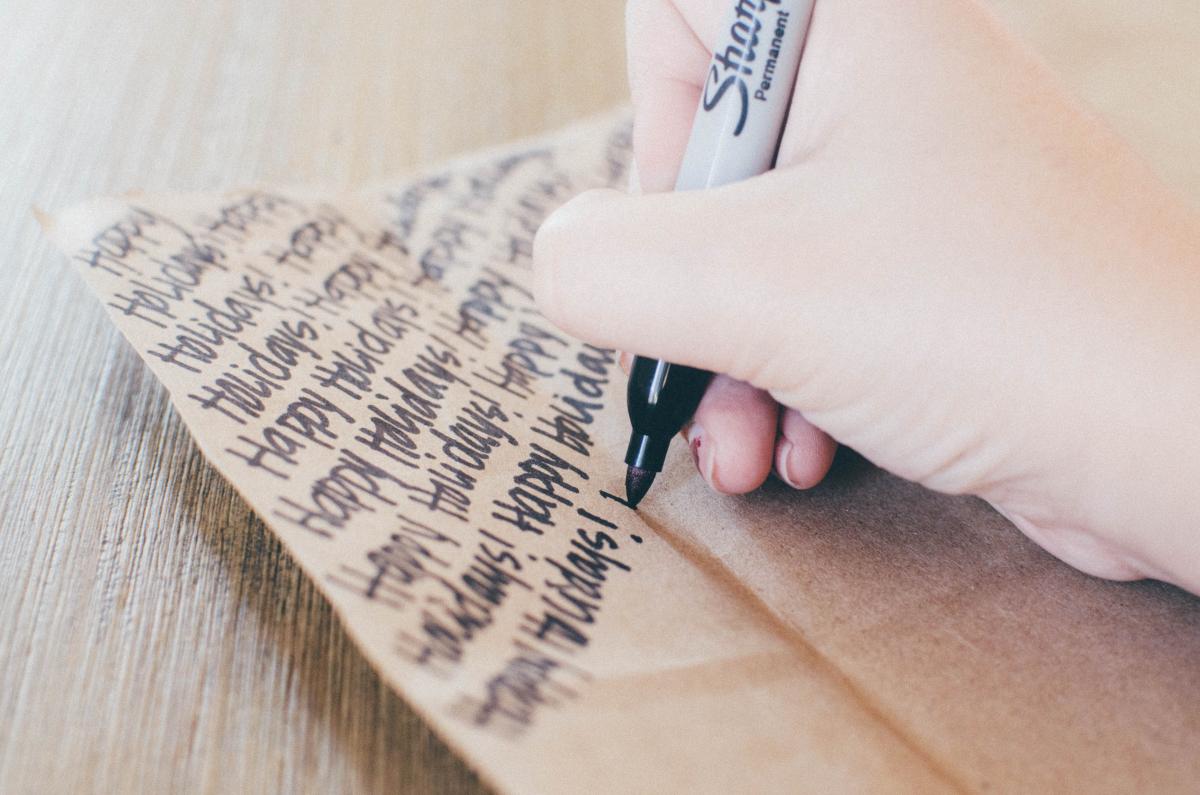 Sharp
Permanent
Happy
Holidays! Happy
Holidays! Happy
Holidays! Happy
Happy Holidays! Happy
Happy Holidays! Happy
Happy Holidays! Happy
Holidays! Happy Holida
Happy Holidays!